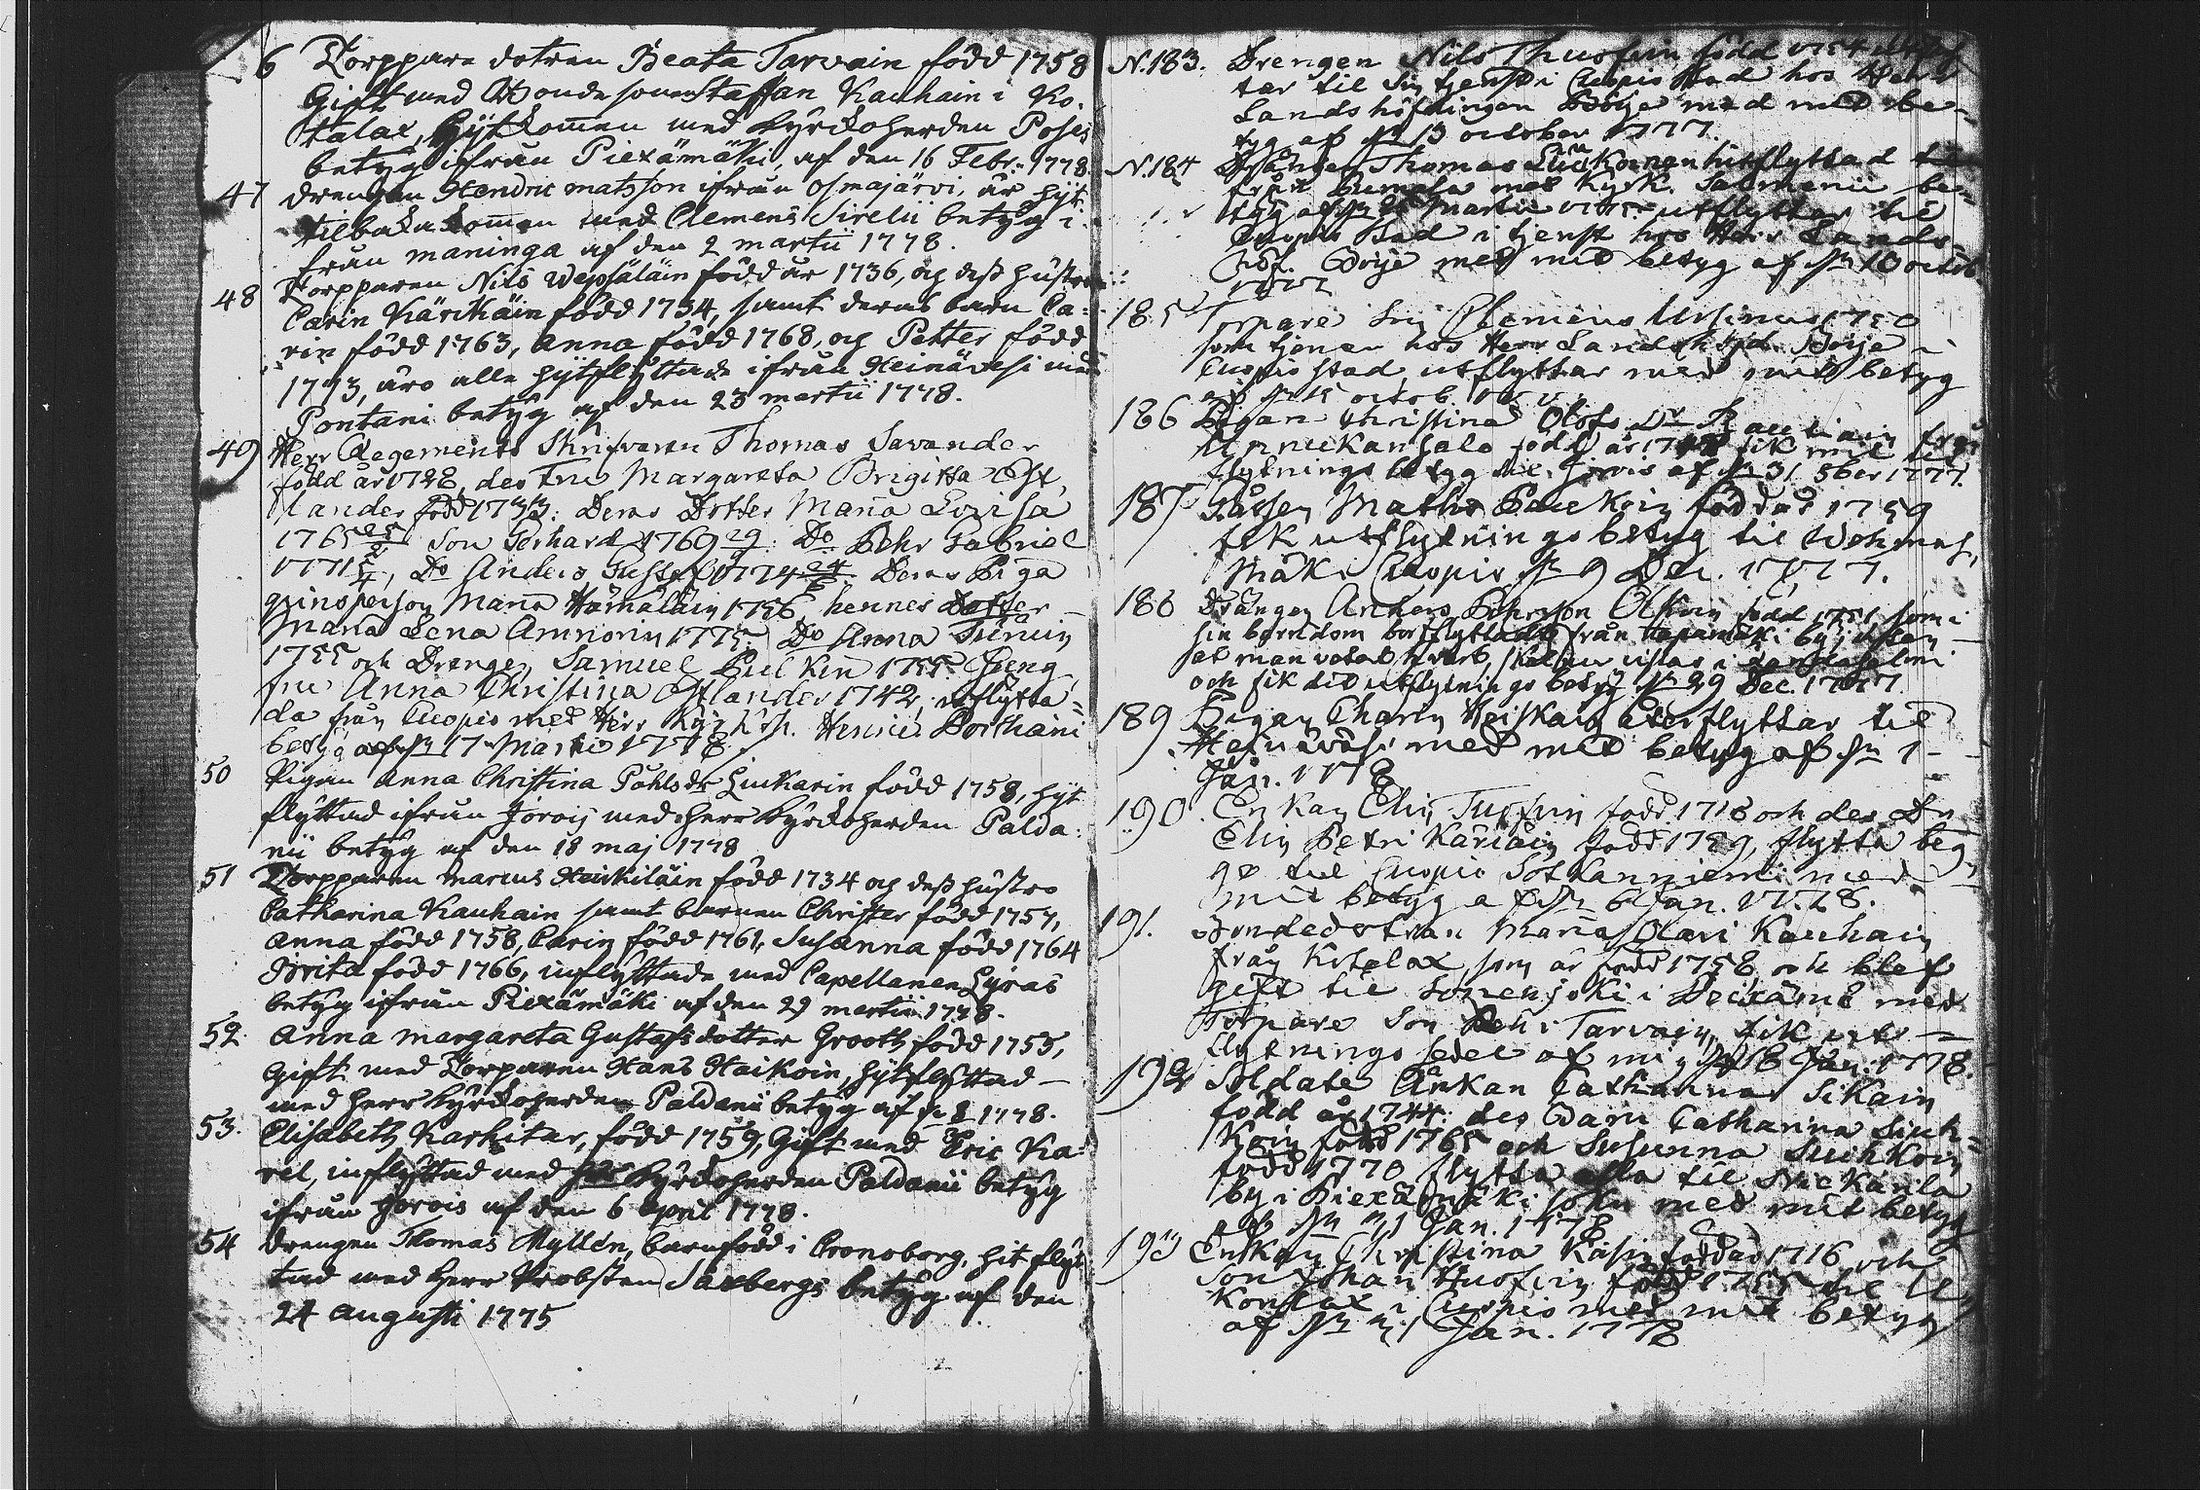 6 Torppare dotren Beata Tarvain född 1758
Gift med Bondesonen Staffan Kauhain i Ko-
talax, hÿtkommen med Kÿrckoherden Poses
betÿg ifrån Piexämäki, af den 16 Febr: 1778.
47 drengen Hendric matsson ifrån osmajärvi, är hÿt
tilbaka kommen med Clemens Sirelii betÿg i-
från maninga af den 2 martii 1778.
48 Torpparen Nils Wepsäläin född år 1736, og dess hustru
Carin Kärckäin född 1734, samt deras barn Ca-
rin född 1763, Anna född 1768, og Petter född
1773, äro alle hÿtflÿttade ifrån Heinävesi med
Pontani betÿg af den 23 martii 1778.
49 Herr Regements Skrifvaren Thomas Savander
född år 1728, des Fru Margareta Brigitta Öst
lander född 1733: Deras Dotter Maria Lovisa
1765 Son Gerhard 1769 29 Do Pehr Gabriel
1771 Do Anders Gustaf 1774 24 Deras Piga
qvinsperson Maria Hämäläin 1756 hennes Dotter
Maria Lena Amnorin 1775. Do Anna
1755 och Drengen Samuel Pulkin 1755. Jung
fru Anna Christina Östlander 1742, utflytta-
da från Cuopio med Herr Kyrkoh. Henric Porthani
betÿg af dn 17 Martii 1778.
50 Pigan Anna Christina Påhlsdr Liukarin född 1758, hÿt
flÿttad ifrån Jorois med herr Kÿrckoherden Palda-
nii betÿg af den 18 maj 1778
51 Torpparen marcus Heickiläin född 1734 og dess hustro
Catharina Kauhain samt barnen Christer född 1757,
Anna född 1758, Carin född 1761, Susanna född 1764
Brita född 1766, inflÿttade med Capellanen Lÿras
betÿg ifrån Piexämäki af den 29 martii 1778.
52. Anna margareta Gustafsdotter Grooth född 1755,
Gift med Torparen Hans Haikoin, hÿtflÿttad
med herr Kÿrckoherden Paldanii betÿg af 1778.
53. Elisabeth Karhitar, född 1759, Gift med Eric Ka-
rel, inflÿttad med Kÿrckoherden Paldanii betÿg
ifrån Jorois af den 6 April 1778.
54 drengen Thomas Myllén, barnfödd i Cronoborg, hit flÿt
tad med herr Probsten Saxbergs betÿg af den
24 augusti 1775
N.183. Drengen Nils Thuosfin född 1754
tar til sin tjenst i Cuopio stad hos Herr
Landshöfdingen Böije med mit be-
tyg af dn 13 october 1777.
N.184 Drängen Thomas Liukoinen hitflyttad
från med Kyrk. Salmenii be-
tyg af dn martii utflyttar til
Cuopio stad i tjenst hos Herr Lands
höf. Böije med mit betyg af dn 10 octob
1777
185 Torpare Son Clemens Ursinus 1750
som tjenar hos Herr Landshöfd. Böije i
Cuopio stad utflyttar med mit betyg
af dn 15 octob. 1777.
186 Pigan Christina Olofs Dr Rautiain från
född år fik mit ut
flytnings betyg til Jorois af dn 31 8ber 1777.
187 Gåssen Maths Paukoin född år 1759
fik utflytnings betyg til Wehmas,
mäki Cuopio dn 9 Dec. 1777.
188 Drängen Anders Pehrsson Olkoin född 1751, som i
sin barndom bortflyttade från by, utan
at man vetat hvart, skal nu vistas i
och fik dit utflytnings betyg dn 29 Dec. 1777
189 Pigan Charin Heiskain återflyttar til
Heinäväsi med mit betyg af dn 1
Jan. 1778
190. Enkan Elin Tuosfin född 1718 och des Dr
Elin Petri Käriäin född 1759, flytta beg
ge til Cuopio Sotkanniemi med
mit betyg af dn 6 Jan. 1778.
191. Bondedotran Maria Olavi Kauhain
från Kotalax, som är född 1758 och blef
gift til Sorsenjoki i Peixäme med
Torpare Son Pehr Tarvain, fik ut
flytnings sedel af mig dn 18 Jan. 1778.
192 Soldate Änkan Catharina Sikain
född år 1744: des Barn Catharina Siuh-
koin född 1765 och Susanna Siuhkoin
född 1770 flytta alla til Nickarila
by i Piexämäki sokn med mit betyg
af dn Jan. 1778
193 Enkan Christina Käsin född år 1716 och
Son Johan Huosfin född 1755 til
Konlax i Cuopio med mit betyg
af dn Jan. 1778